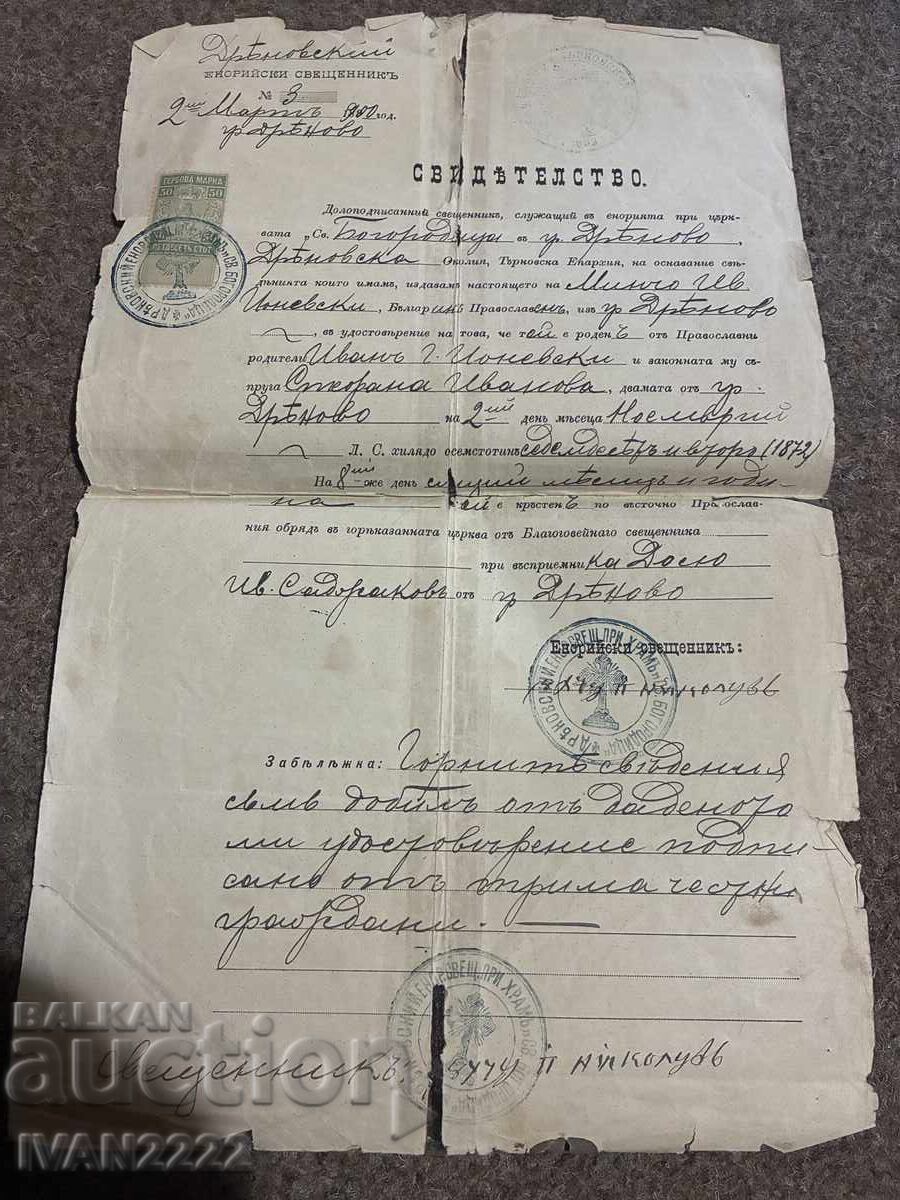 Дрѣновский
ЕНОРИЙСКИ СВЕЩЕННИКЪ
№ 3
2ий Мартъ 1900 год.
гр. Дрѣново
ГЕРБОВА МАРКА
50 50
СВИДѢТЕЛСТВО.
Долоподписанний свещенникъ, служащий въ енорията при църк-
вата „Св. Богородица въ гр. Дрѣново,
Дрѣновска Околия, Търновска Епархия, на основание свѣ-
дѣнията които имамъ, издавамъ настоящето на Минчо Ив.
Ионевски, Бѫлгаринъ Православенъ, изъ гр. Дрѣново
, въ удостовѣрение на това, че той е роденъ отъ Православни
родители Иванъ Г. Ионевски и законната му съ-
пруга Иванова, двамата отъ гр.
Дрѣново на 2ий день мѣсеца Ноемврий
Л. С. хилядо осемстотинъ седемдесеть и втора (1872)
На 8ий же день сѫщий мѣсецъ и годи-
на той е кръстенъ по въсточно Православ-
ния обрядъ въ горѣказанната църква отъ Благоговейнаго свещенника
при въсприемника Досю
Ив. отъ гр. Дрѣново
Енорийски свещенникъ:
П Николувъ
ДРѢНОВСКИЙ ЕНОР. СВЕЩ. ПРИ ХРАМЪ „СВ. БОГОРОДИЦА“
Забѣлѣжка: Горнитѣ сведения
съмъ добилъ отъ даденото
ми удостовѣрение подпи-
сано отъ трима честни
граждани.
Свещенникъ: П Николувъ
BALKAN
auction
IVAN2222